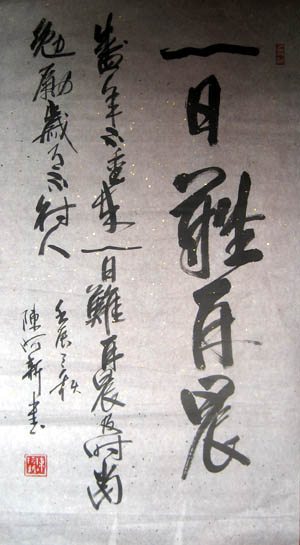 一日難再晨
盛年不重来一日難再晨及时當
勉励歲月不待人
壬辰之秋
陳新書